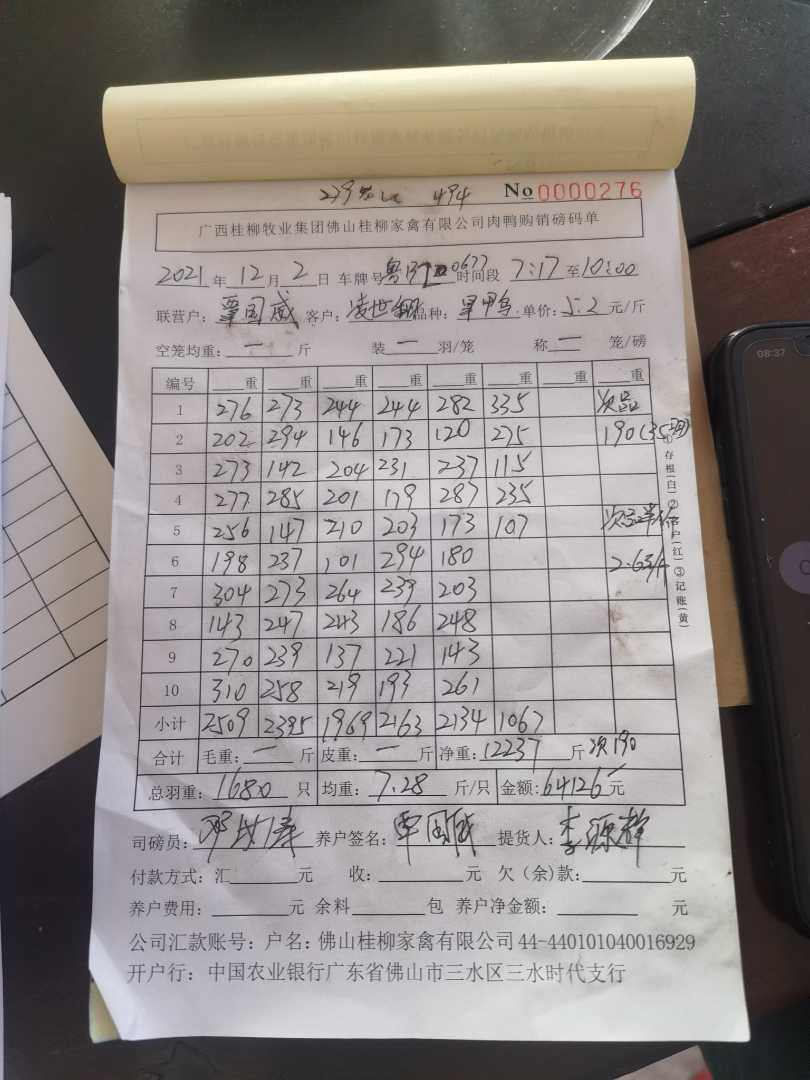 239 494 No 0000276
广西桂柳牧业集团佛山桂柳家禽有限公司肉鸭购销磅码单
2021年12月2日 车牌号 粤 0677 时间段 7:17至10:00
联营户：覃国威 客户：凌世 品种：单价：5.2元/斤
空笼均重：一斤 装一羽/笼 称一笼/磅
编号 重 重 重 重 重 重 重 重
1 276 273 244 244 282 335 次品
2 202 294 146 173 120 275 190(35羽)
3 273 142 204 231 237 115
4 277 285 201 179 287 235
5 256 147 210 203 173 107 次品单价
6 198 237 101 294 180 2.6
7 304 273 264 239 203
8 143 247 243 186 248
9 270 239 137 221 143
10 310 258 219 193 261
小计 2509 2395 1969 2163 2134 1067
合计 毛重：一斤 皮重：一斤 净重：12237斤 次190
总羽重：1680只 均重：7.28斤/只 金额：64126元
司磅员： 养户签名：覃国威 提货人：李源静
付款方式：汇 元 收： 元 欠（余）款： 元
养户费用： 元 余料 包 养户净金额： 元
公司汇款账号：户名：佛山桂柳家禽有限公司 44-440101040016929
开户行：中国农业银行广东省佛山市三水区三水时代支行
①存根(白)②客户(红)③记账(黄)
08:37